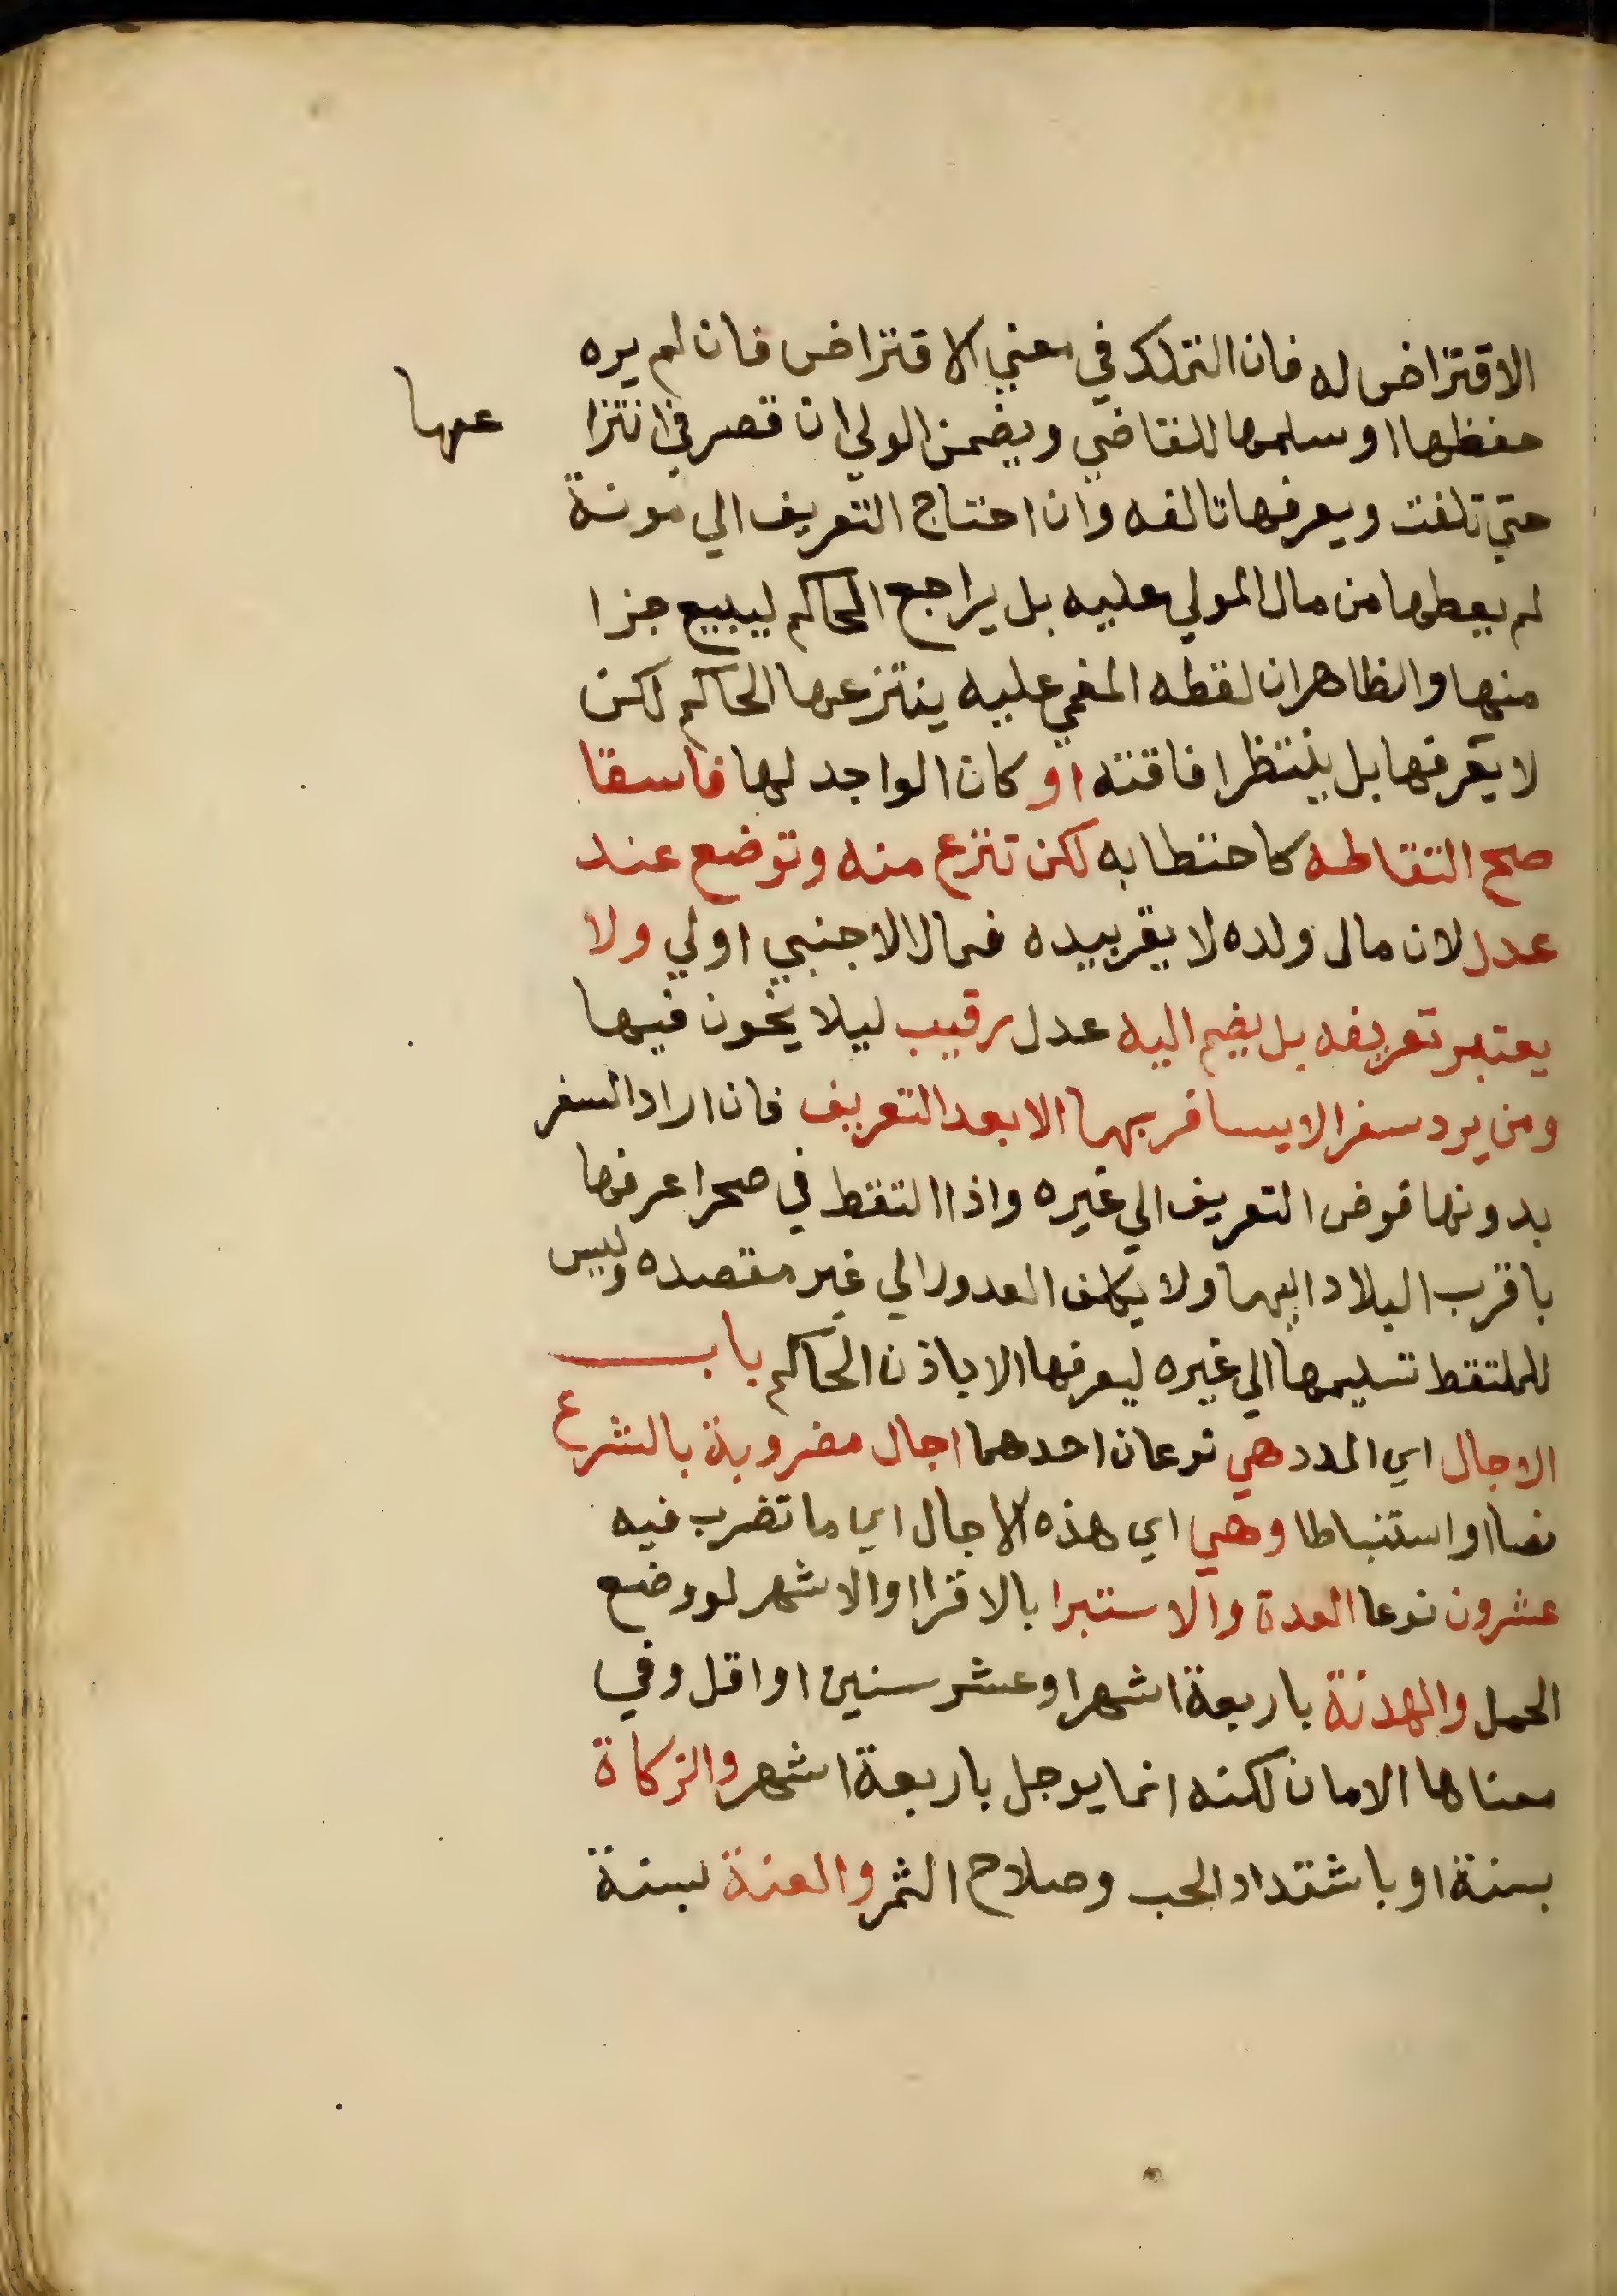 الاقتراض له فان التملك في معني الاقتراض فان لم يره
حفظها او سلمها للقاضي ويضمن الولي ان قصر في انتزا عها
حتي تلفت ويعرفها تالفه وان احتاج التعريف الي مونة
لم يعطها من مال المولي عليه بل يراجع الحاكم ليبيع جزا
منها والظاهر ان لقطه المغمي عليه ينتزعها الحاكم لكن
لا يعرفها بل ينتظر افاقته او كان الواجد لها فاسقا
صح التقاطه كاحتطابه لكن تنزع منه وتوضع عند
عدل لان مال ولده لا يقر بيده فمال الاجنبي اولي ولا
يعتبر تعريفه بل يضم اليه عدل رقيب ليلا يخون فيها
ومن يرد سفرا لا يسافر بها الا بعد التعريف فان اراد السفر
بدونها فوض التعريف الي غيره واذا التقط في صحرا عرفها
باقرب البلاد اليها ولا يكلف العدول الي غير مقصده وليس
للملتقط تسليمها الي غيره ليعرفها الا باذن الحاكم باب
الاجال اي المدد هي نوعان احدهما اجال مضروبة بالشرع
نصا او استنباطا وهي اي هذه الاجال اي ما تضرب فيه
عشرون نوعا العدة والاستبرا بالاقرا او الاشهر لو وضع
الحمل والهدنة باربعة اشهر او عشر سنين او اقل وفي
معناها الامان لكنه انما يوجل باربعة اشهر والزكاة
بسنة او باشتداد الحب وصلاح الثمر والعنة بسنة